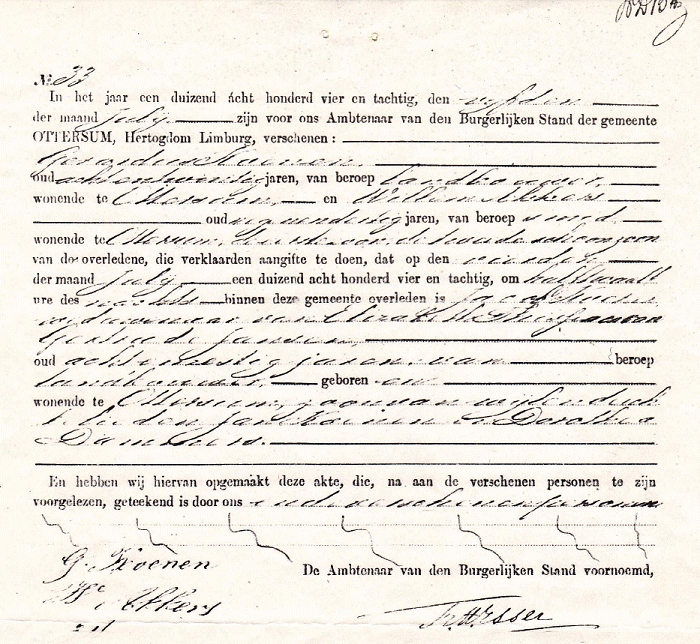 № 33
In het jaar een duizend acht honderd vier en tachtig, den vyfden
der maand July zijn voor ons Ambtenaar van den Burgerlijken Stand der gemeente
OTTERSUM, Hertogdom Limburg, verschenen:
Gerardus Koenen,
oud achtentwintig jaren, van beroep landbouwer,
wonende te Ottersum, en Willem Akkers
oud negenendertig jaren, van beroep smid
wonende te Ottersum, de eerste zoon, de tweede schoonzoon
van de overledene, die verklaarden aangifte te doen, dat op den vierden
der maand July een duizend acht honderd vier en tachtig, om half twaalf
ure des nachts binnen deze gemeente overleden is Jacob Koenen
weduwnaar van Elizabeth en van
Gertrude Jansen,
oud achtenzestig jaren, van beroep
landbouwer, geboren en
wonende te Ottersum, zoon van wijlen de echt
lieden Jan Koenen en Dorothea
Dammers.
En hebben wij hiervan opgemaakt deze akte, die, na aan de verschenen personen te zijn
voorgelezen, geteekend is door ons en de verschenen personen
G. Koenen
De Ambtenaar van den Burgerlijken Stand voornoemd,
W. Akkers